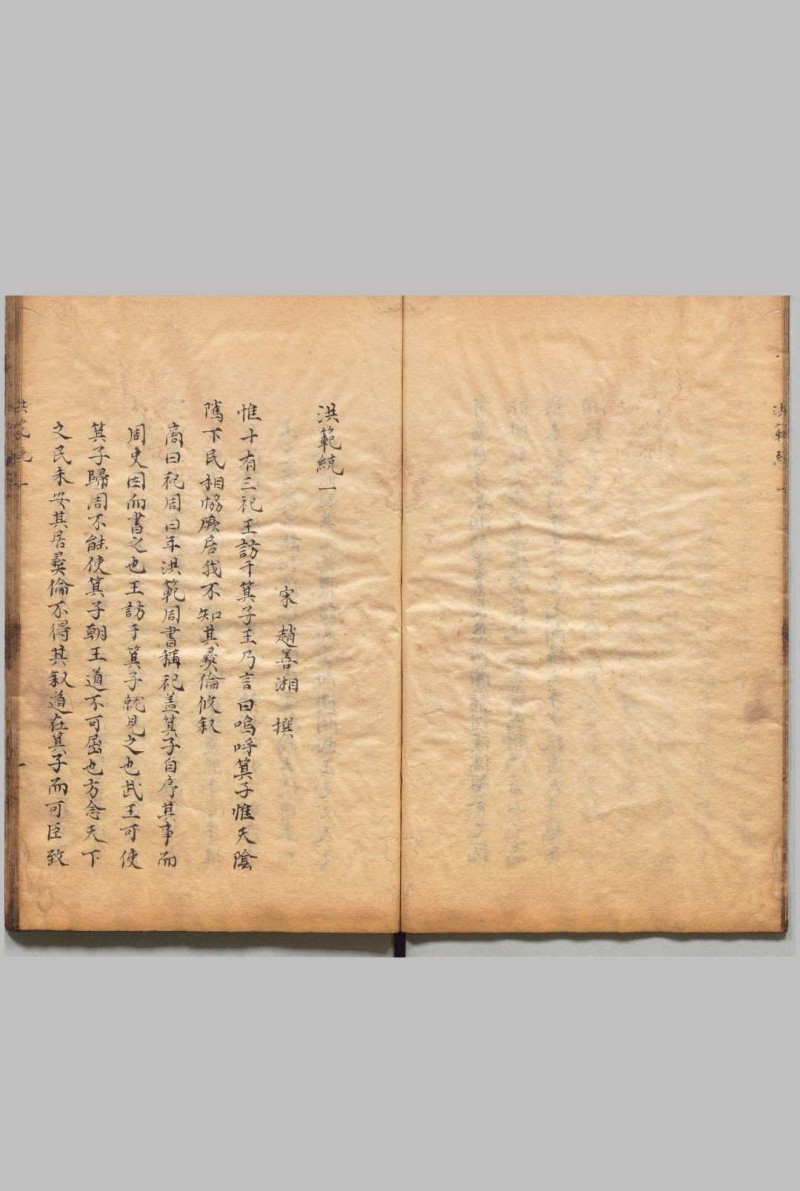 洪範統一
宋 趙善湘 撰
惟十有三祀王訪于箕子王乃言曰嗚呼箕子惟天陰
隲下民相協厥居我不知其彞倫攸叙
商曰祀周曰年洪範周書稱祀盖箕子自序其事而
周史因而書之也王訪于箕子就見之也武王可使
箕子歸周不能使箕子朝王道不可屈也方念天下
之民未安其居彞倫不得其叙道在箕子而可臣致
洪範統一